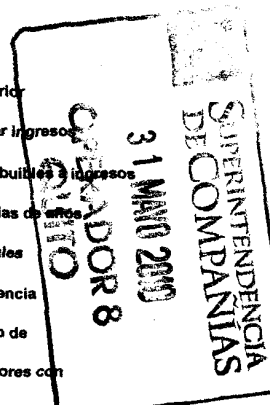 rior
r ingresos
buibles a ingresos
las de años
les
encia
o de
ores con
SUPERINTENDENCIA
DE COMPAÑÍAS
31 MAYO
OPERADOR 8
QUITO